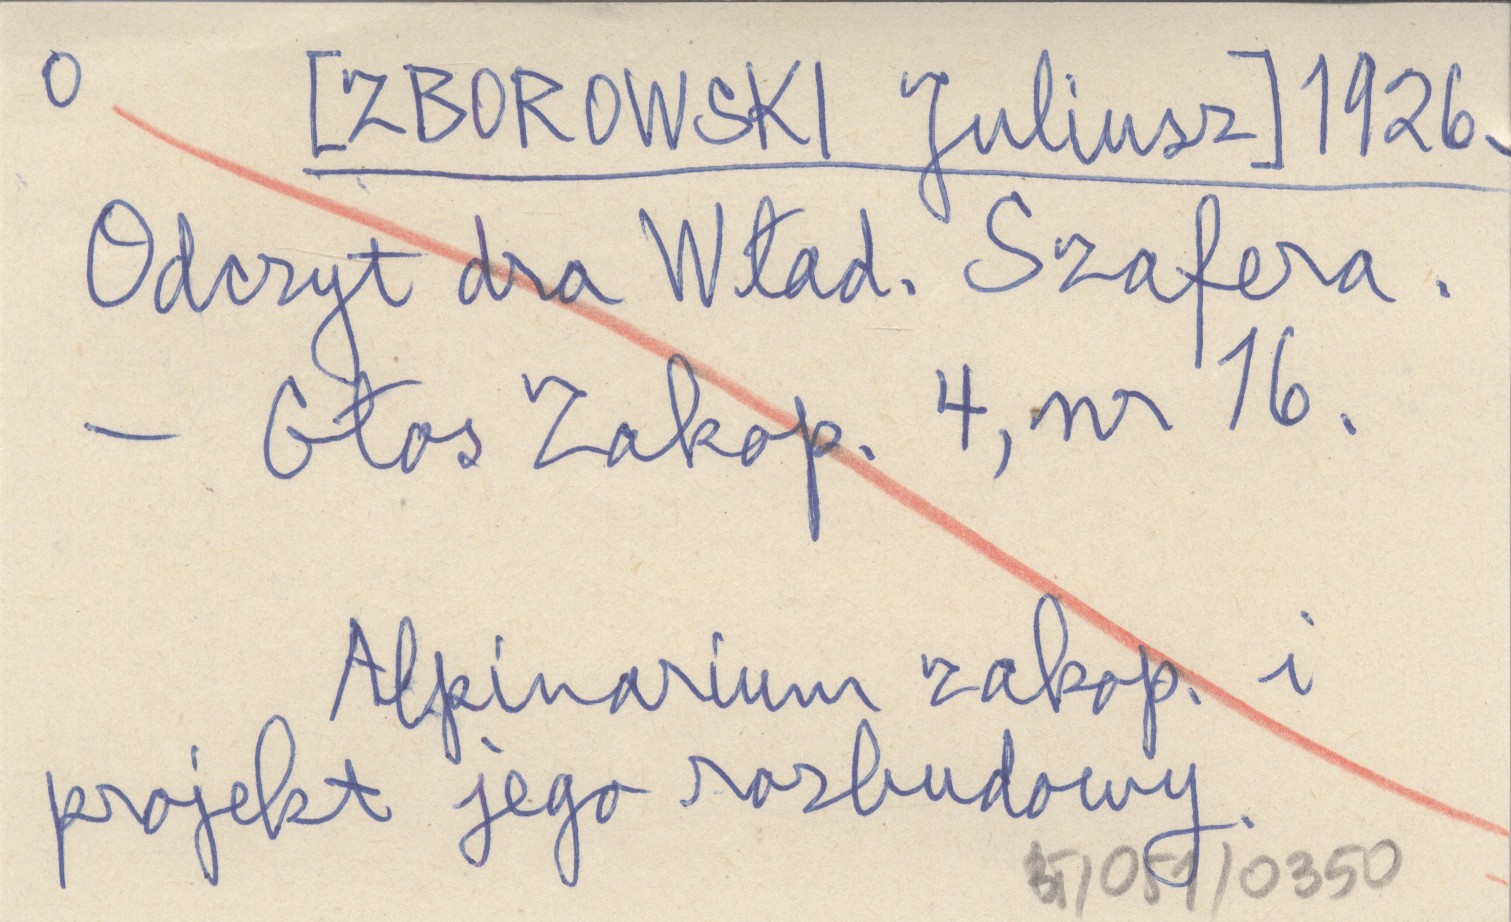 O [ZBOROWSKI Juliusz] 1926.
Odczyt dra Wład. Szafera.
— Głos Zakop. 4, nr 16.
Alpinarium zakop. i
projekt jego rozbudowy.
/051/0350